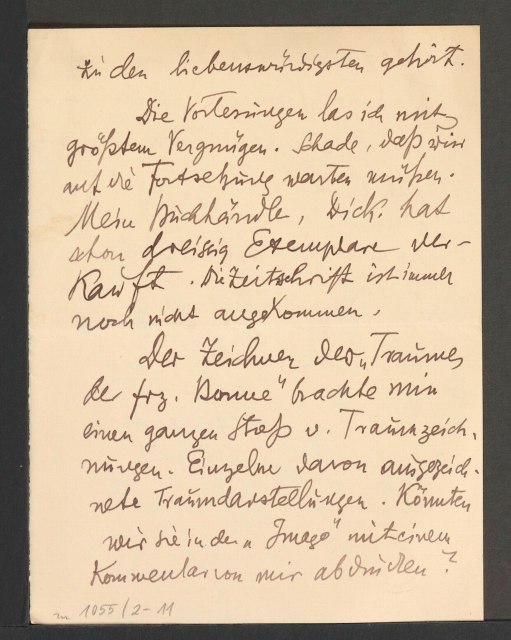 zu den liebenswürdigsten gehört.
Die Vorlesungen las ich mit
größtem Vergnügen. Schade, daß wir
auf die Fortsetzung warten müßen.
Mein Buchhändle, Dick. hat
schon dreissig Exemplare ver-
kauft. Die Zeitschrift ist immer
noch nicht angekommen.
Der Zeichner des „Traumes
der frz. Bonne" brachte mir
einen ganzen Stoß v. Traumzeich-
nungen. Einzelne davon ausgezeich-
nete Traumdarstellungen. Könnten
wir sie in der „Imago" mit einem
Kommentar von mir abdrucken?
1055/2-11